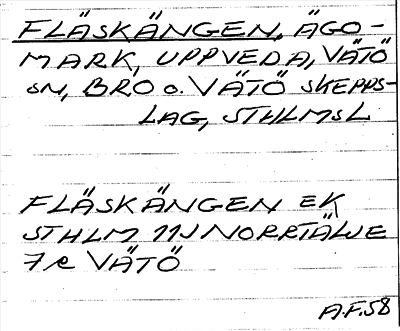 FLÄSKÄNGEN, ÄGO-
MARK, UPPVEDA, VÄTÖ
SN, BRO o. VÄTÖ SKEPPS-
LAG, STHLMSL
FLÄSKÄNGEN EK
STHLM 11J NORRTÄLJE
7e VÄTÖ
A.F.58